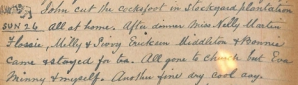 John cut the cocksfoot in Stockyard plantation
SUN 26. All at home. After dinner Miss Nelly Martin
Flossie, Milly & Ivory Ericksen Middleton & Bonnie
came & stayed for tea. All gone to church but Eva
Minny & myself. Another fine dry cool day.